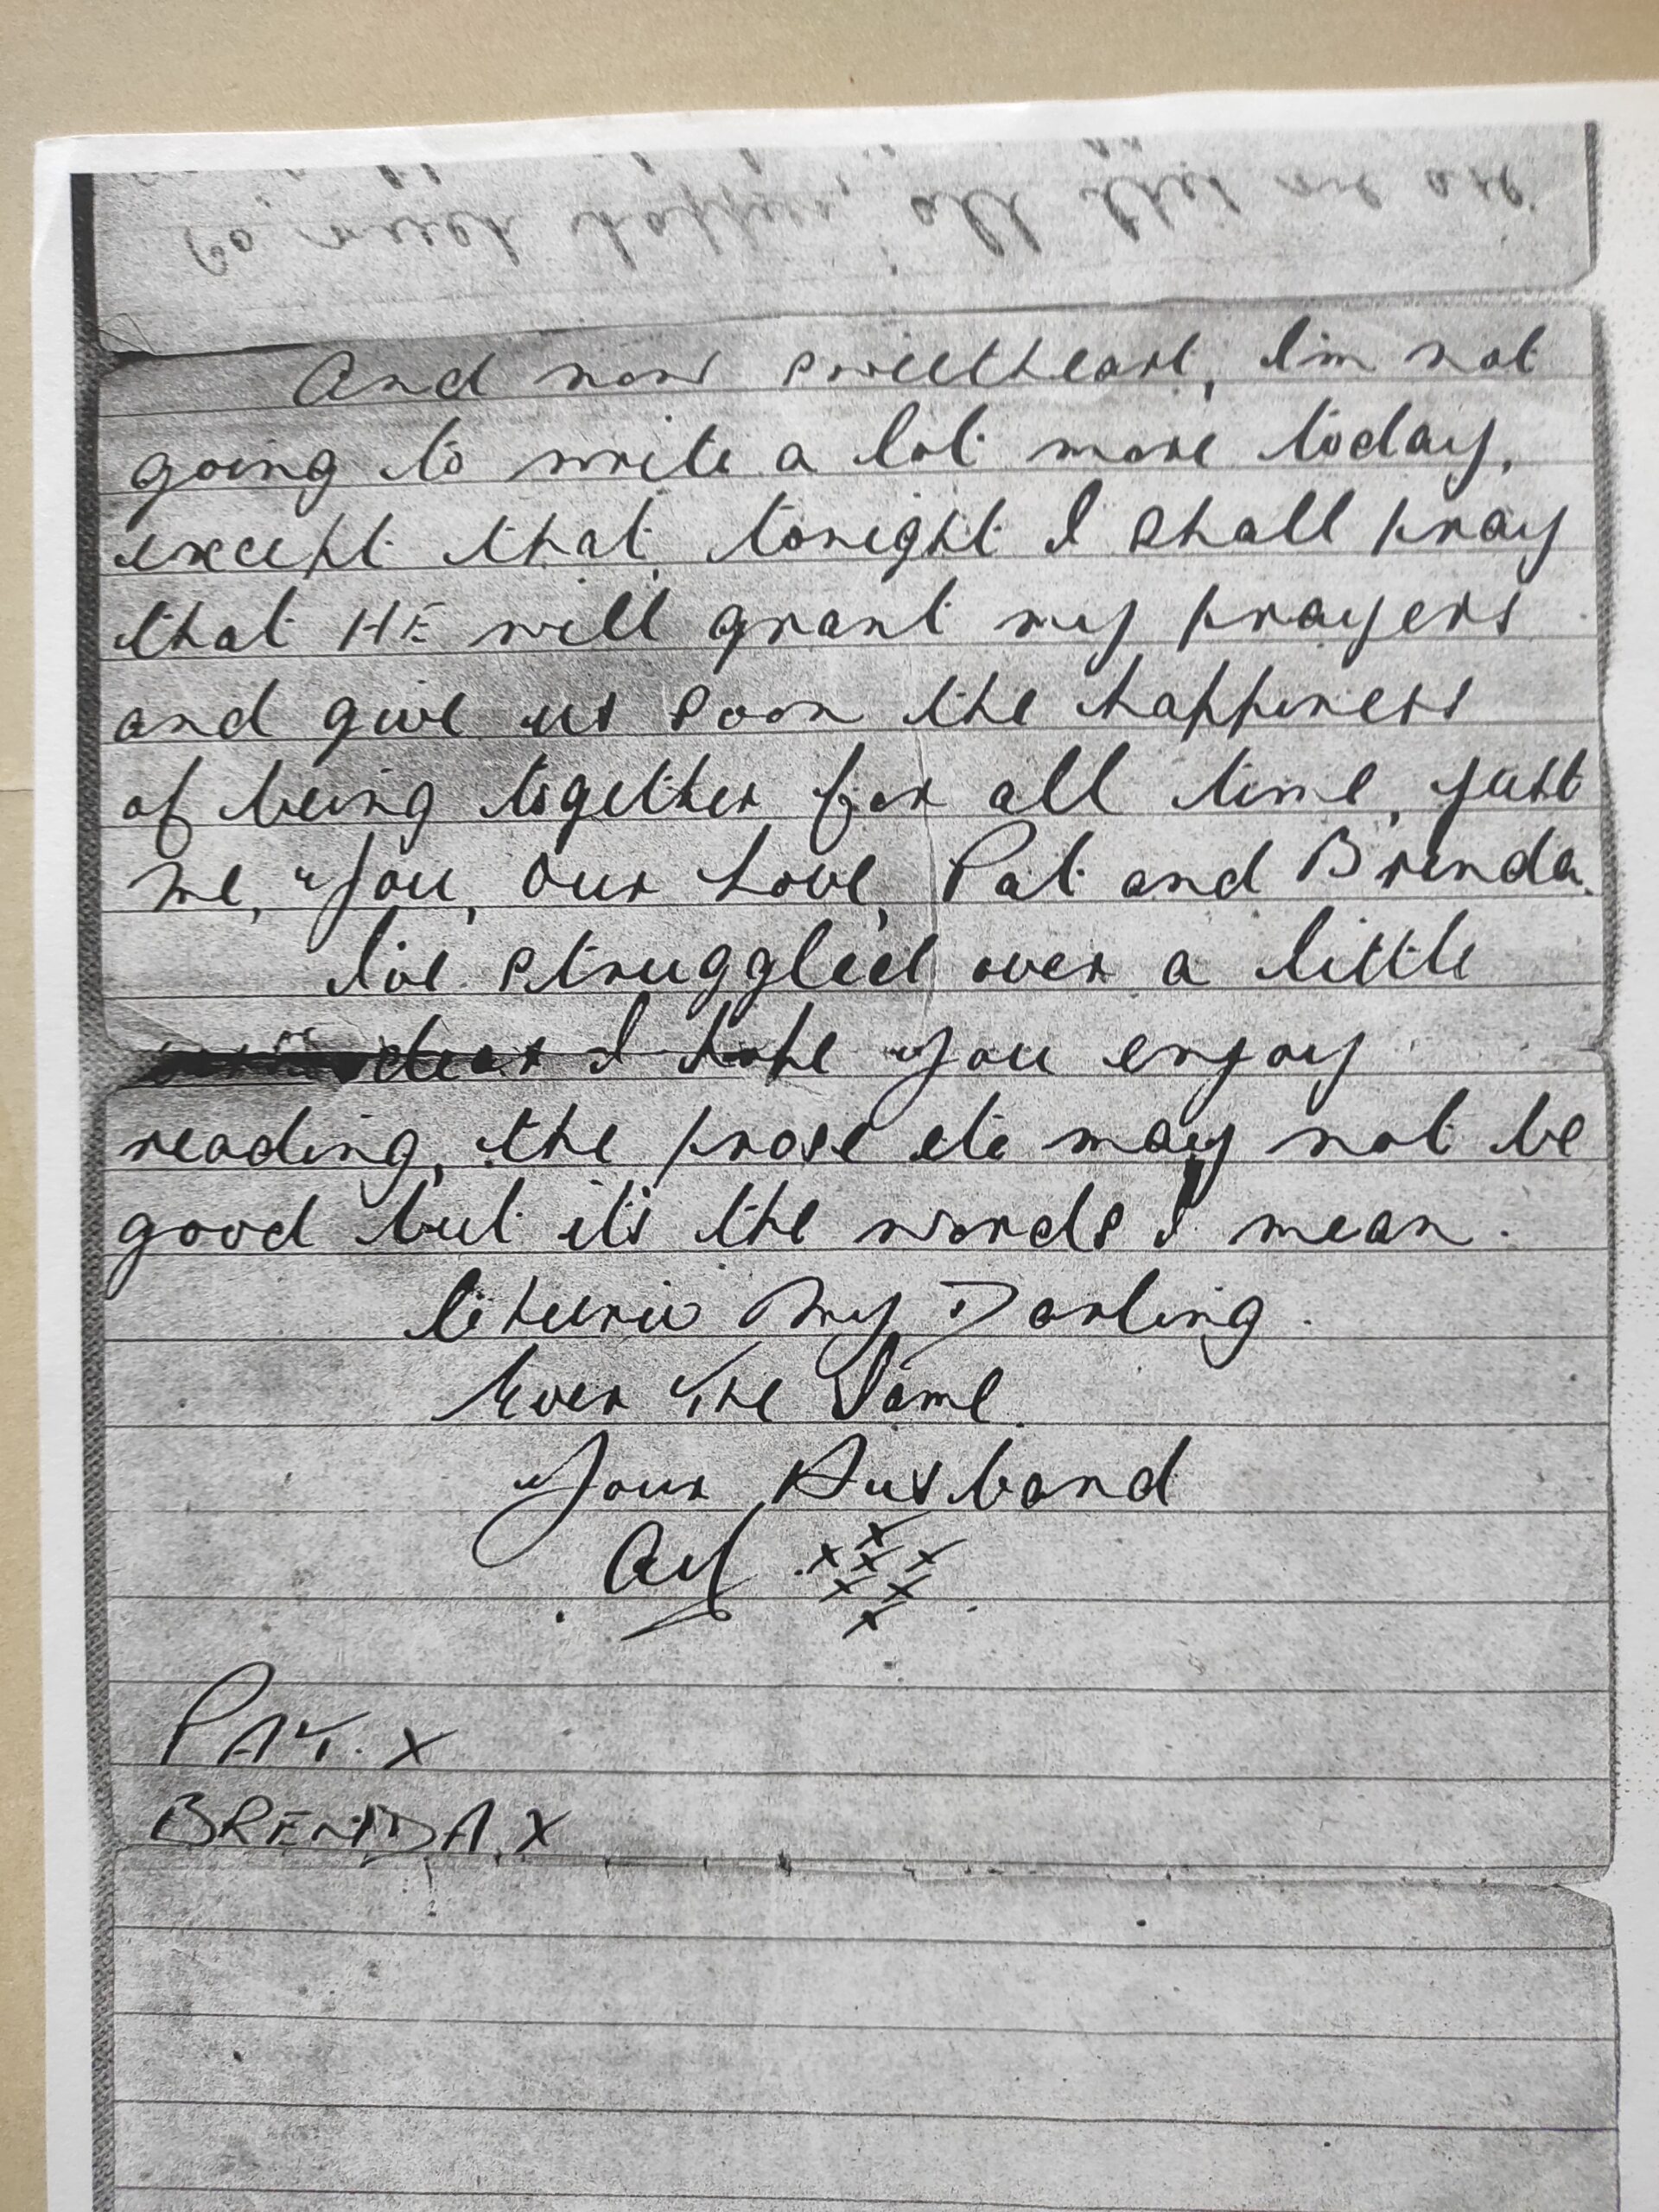 And now sweetheart, I'm not
going to write a lot more today,
except that, tonight I shall pray
that HE will grant my prayers
and give us soon the happiness
of being together for all time, just
Me, You, Our Love, Pat and Brenda.
I've struggled over a little
dear I hope you enjoy
reading, the prose etc may not be
good but it's the words I mean.
My Darling.
Ever The Same.
Your Husband
xxxxxxx
PAT. X
BRENDA. X